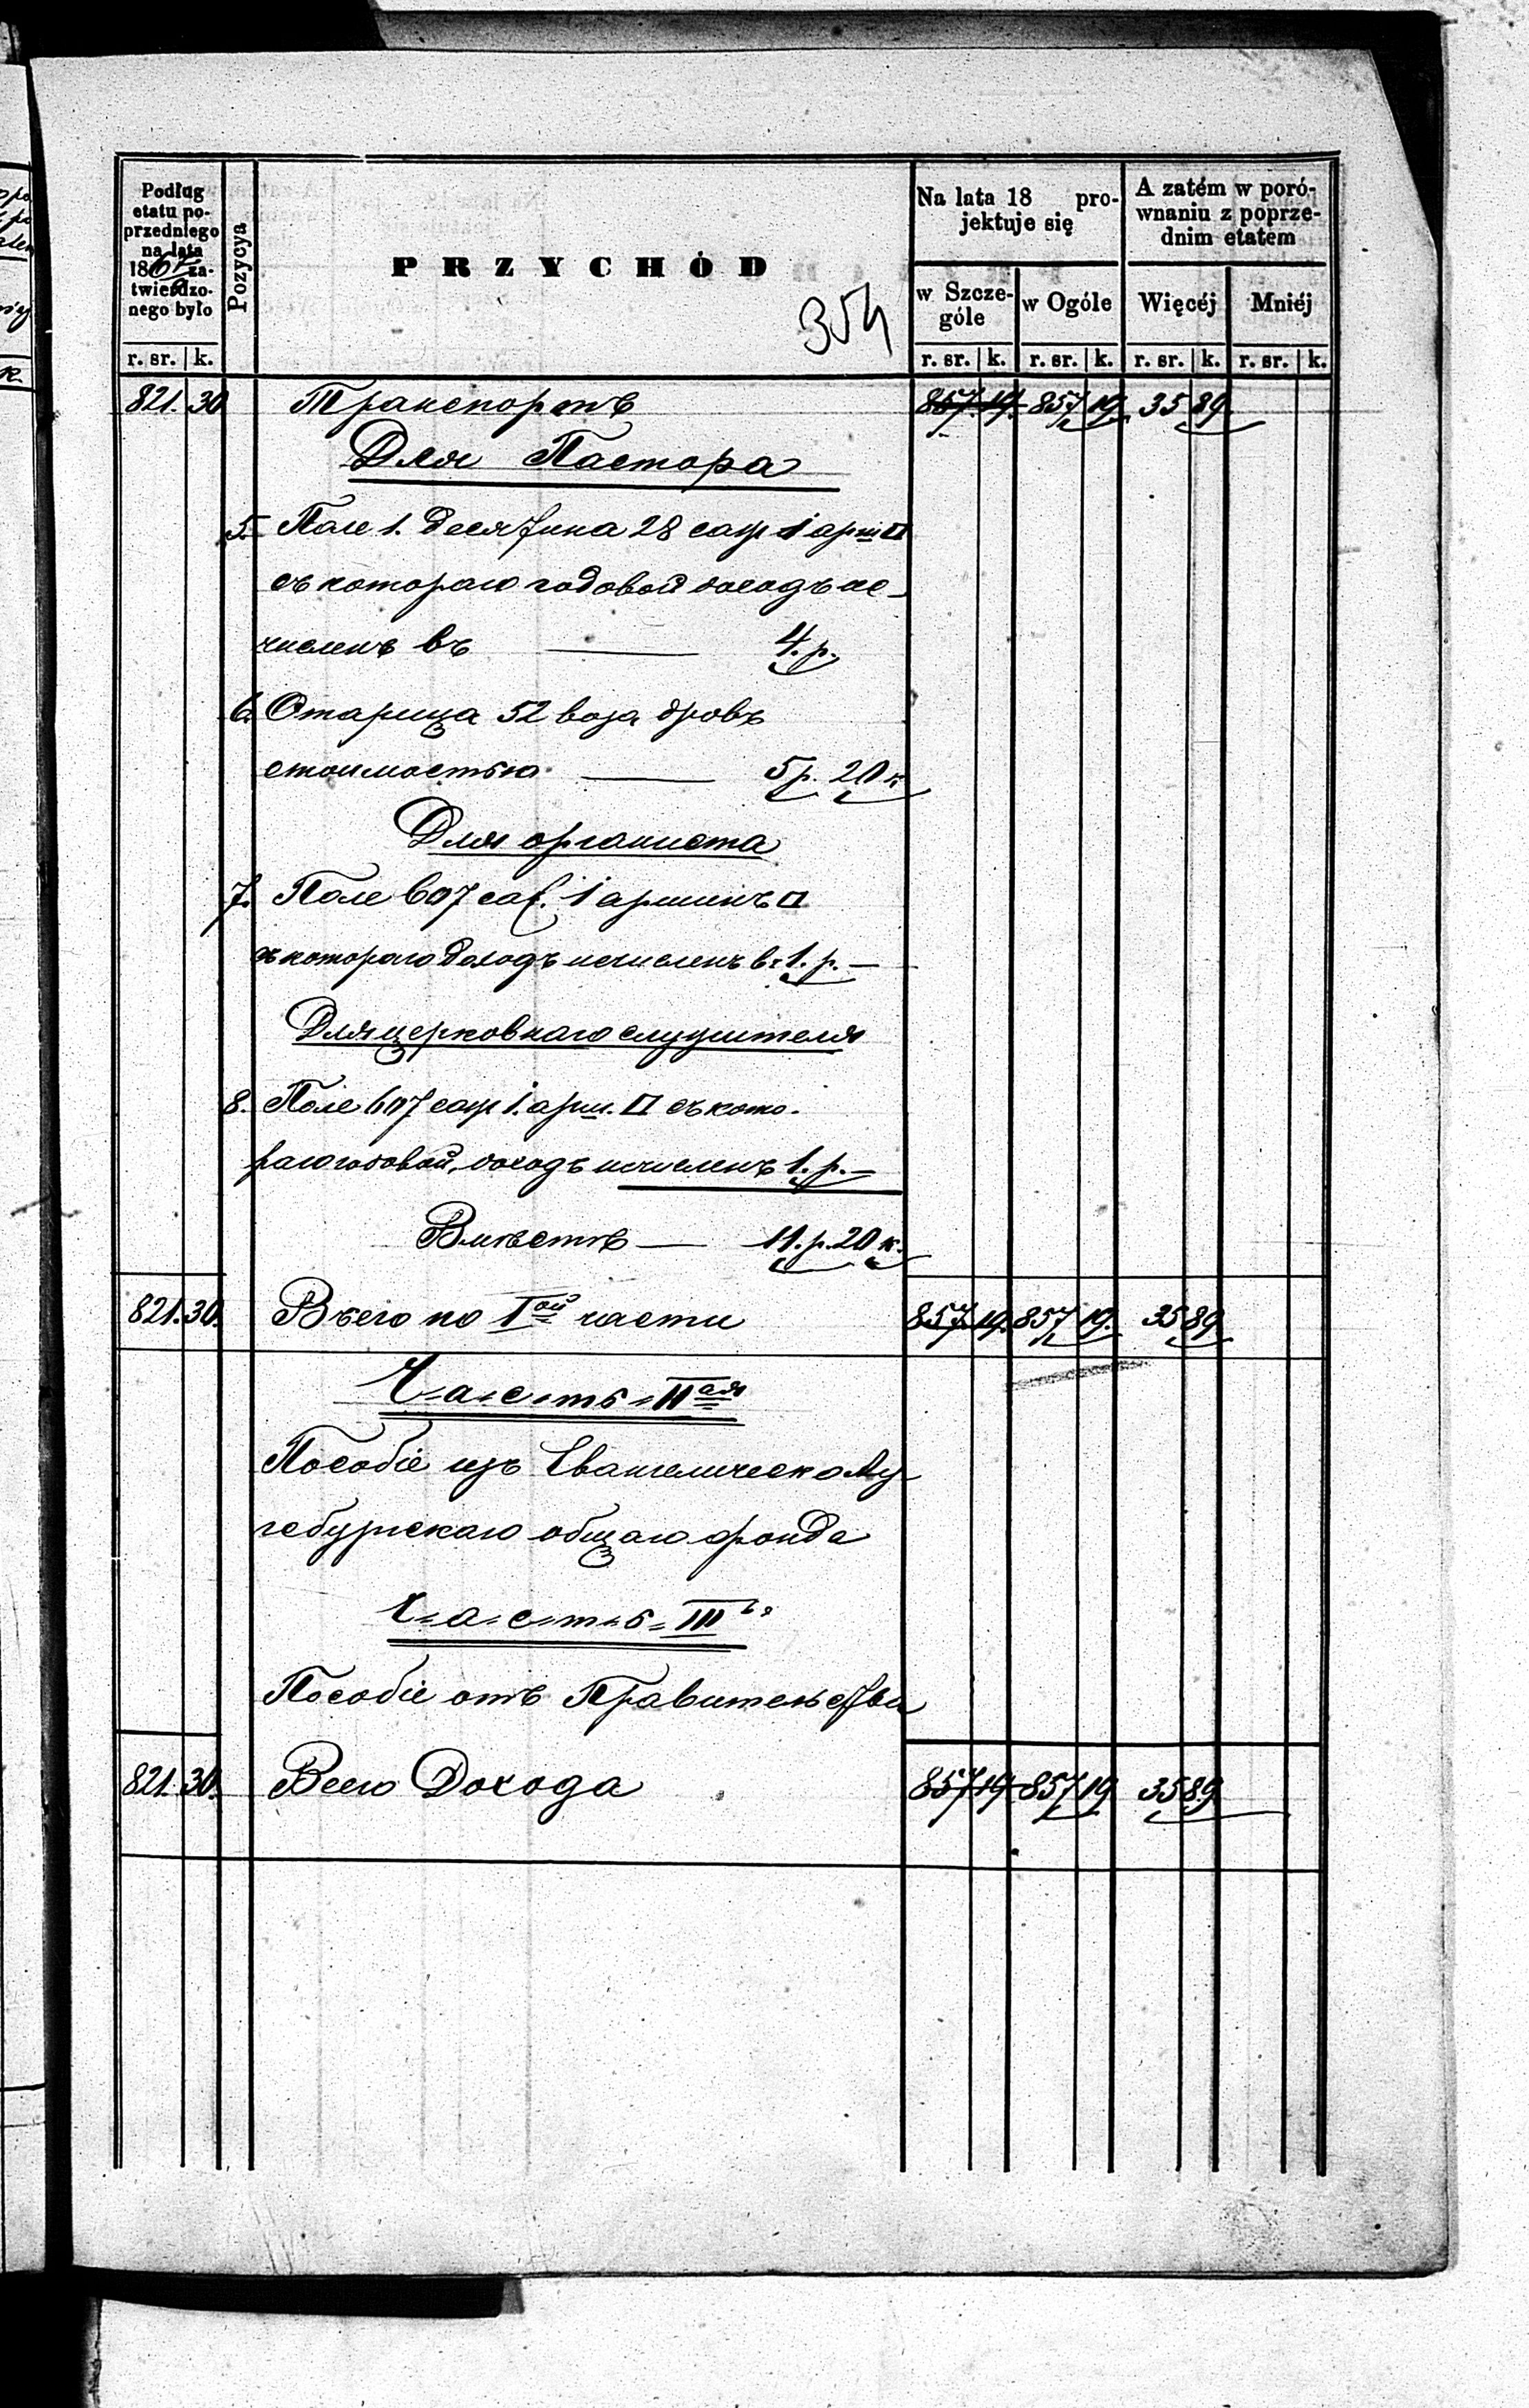 Podług etatu poprzedniego na lata 1867/9 zatwierdzonego było
Pozycya
PRZYCHÓD
354
Na lata 18 projektuje się
A zatém w porównaniu z poprzednim etatem
w Szczególe
w Ogóle
Więcéj
Mniéj
r. sr. k. r. sr. k. r. sr. k. r. sr. k. r. sr. k.
821. 30 Транспортъ 857. 19. 857 19. 35 89
Для Пастора
5. Поле 1. десятина 28 саж 1 арш □
съ котораго годовой доходъ ис-
численъ въ — 4. р.
6. 52 воза дровъ
стоимостью — 5 р. 20 к
Для органиста
7. Поле 607 саж. 1 аршинъ □
съ котораго доходъ исчисленъ въ 1. р. —
Для церковнаго служителя
8. Поле 607 саж 1. арш. □ съ кото-
раго годовой доходъ исчисленъ 1. р. —
Вмѣстѣ — 11. р. 20 к.
821. 30. Всего по Iой части 857. 19. 857 19. 35 89
Ч=а=с=т=ь=IIая
Пособіе изъ Евангелическо Ау-
гсбургскаго общаго фонда
Ч=а=с=т=ь=III
Пособіе отъ Правительства
821. 30. Всего Дохода 857 19 857 19 35 89